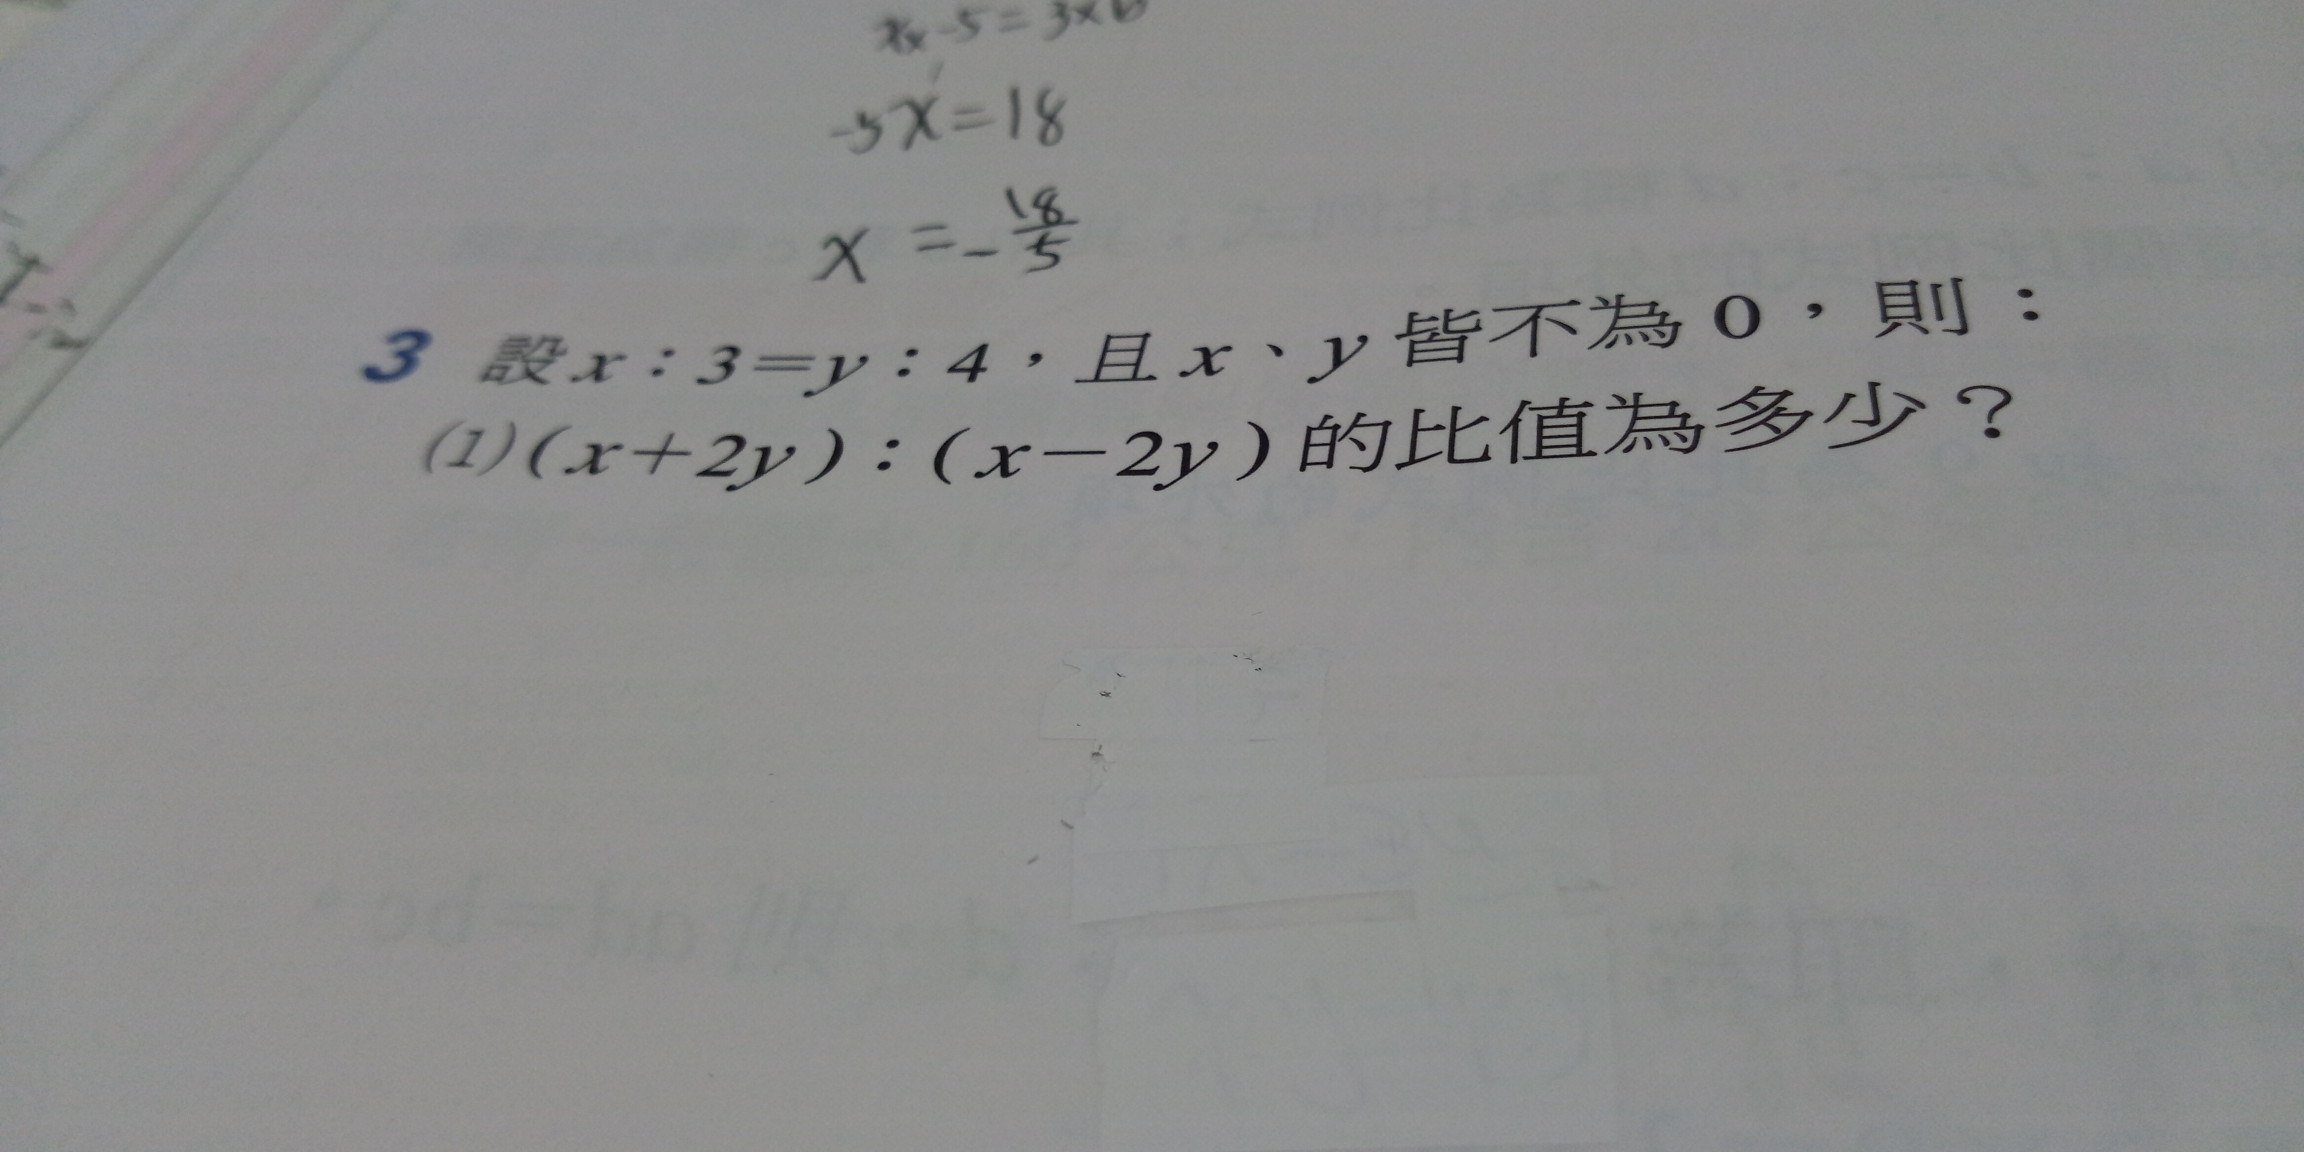 -5x=18
x=-18/5
3 設x:3=y:4,且x、y皆不為0,則:
(1)(x+2y):(x-2y)的比值為多少?